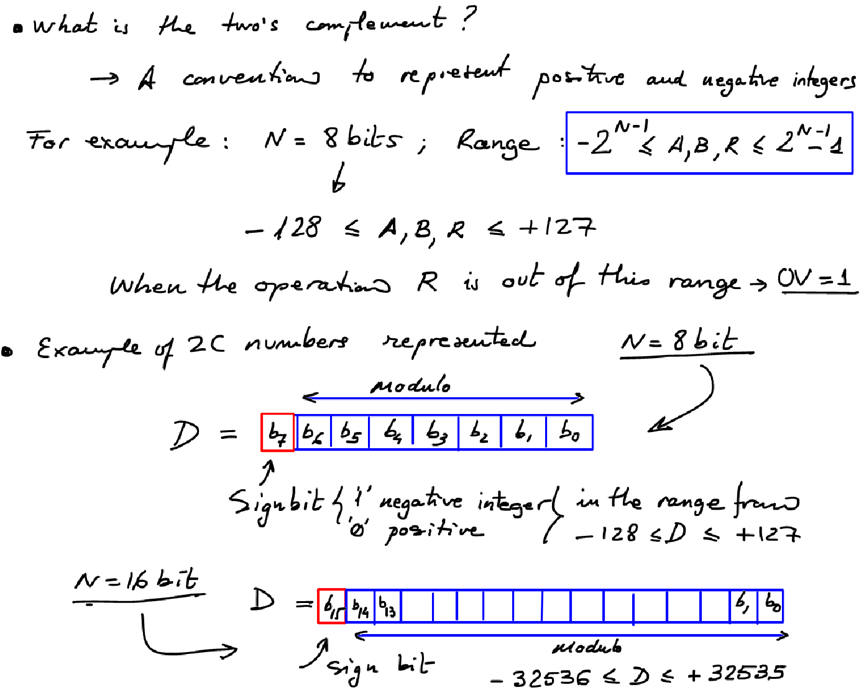 • What is the two's complement?
→ A convention to represent positive and negative integers
For example: N = 8 bits; Range: -2^{N-1} ≤ A, B, R ≤ 2^{N-1} - 1
-128 ≤ A, B, R ≤ +127
When the operation R is out of this range → OV=1
• Example of 2C numbers represented N = 8 bit
modulo
D = b7 b6 b5 b4 b3 b2 b1 b0
Sign bit { '1' negative integer } in the range from
'0' positive -128 ≤ D ≤ +127
N = 16 bit D = b15 b14 b13 b1 b0
modulo
sign bit -32536 ≤ D ≤ +32535